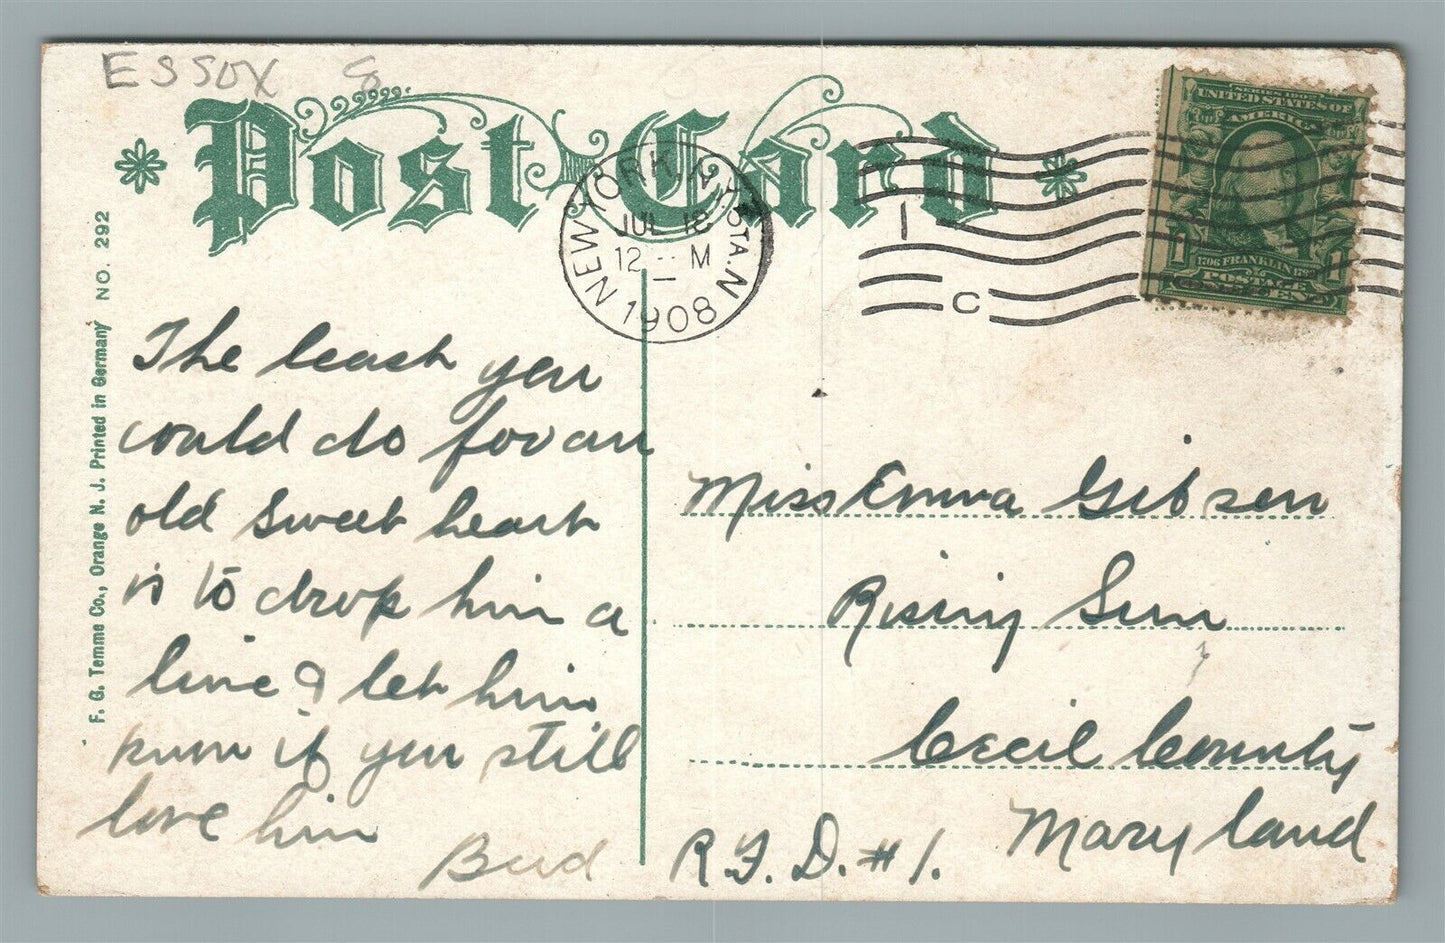 ESSOX 8
Post Card
NEW YORK, N.Y. STA. N
JUL 18
12 M
1908
1
C
SERIES 1902
UNITED STATES OF
AMERICA
1 1
1706 FRANKLIN 1790
POSTAGE
ONE CENT
F. G. Temme Co., Orange N. J. Printed in Germany NO. 292
The least you
could do for an
old sweet heart
is to drop him a
line & let him
know if you still
love him
Bud
Miss Emma Gibson
Rising Sun
Cecil County
Maryland
R.F.D. #1.